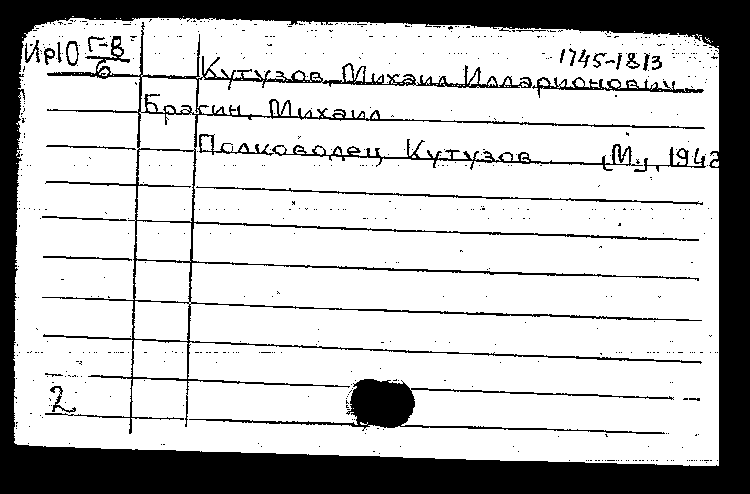 1745-1813
Ир10 Г-В/6 Кутузов, Михаил Илларионович
Брагин, Михаил
Полководец Кутузов [М.], 1942
2